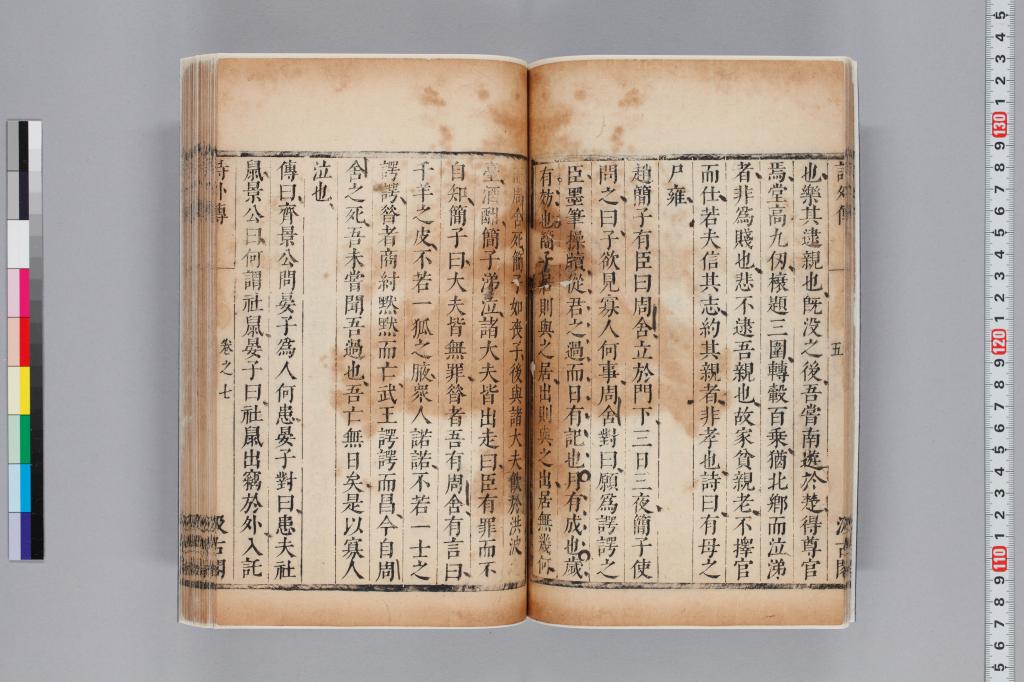 也樂其逮親也旣没之後吾嘗南遊於楚得尊官
焉堂高九仞榱題三圍轉轂百乘猶北鄉而泣涕
者非爲賤也悲不逮吾親也故家貧親老不擇官
而仕若夫信其志約其親者非孝也詩曰有母之
尸雍
趙簡子有臣曰周舍立於門下三日三夜簡子使
問之曰子欲見寡人何事周舍對曰願爲諤諤之
臣墨筆操牘從君之過而日有記也月有成也歲
有効也簡子居則與之居出則與之出居無幾何
周舍死簡子如喪子後與諸大夫飲於洪波
臺酒酣簡子涕泣諸大夫皆出走曰臣有罪而不
自知簡子曰大夫皆無罪昝者吾有周舍有言曰
千羊之皮不若一狐之腋衆人諾諾不若一士之
諤諤昝者商紂黙黙而亡武王諤諤而昌今自周
舍之死吾未嘗聞吾過也吾亡無日矣是以寡人
泣也
傳曰齊景公問晏子爲人何患晏子對曰患夫社
鼠景公曰何謂社鼠晏子曰社鼠出竊於外入託
詩外傳
卷之七
汲古閣
五